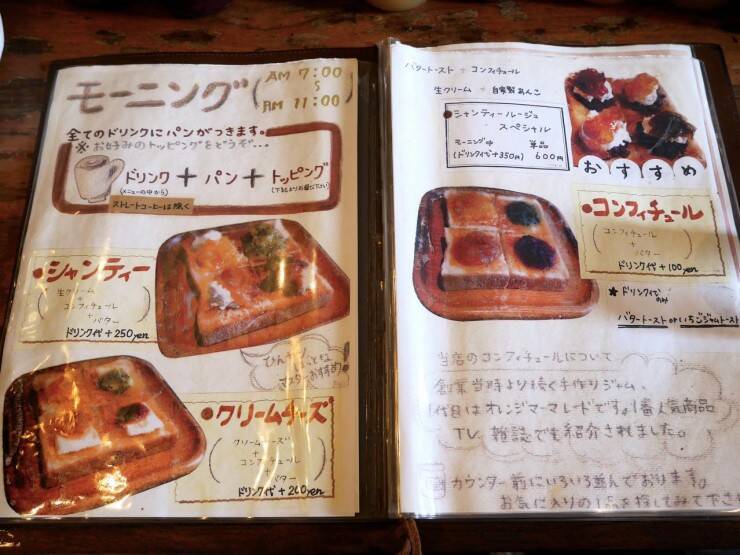 モーニング
AM 7:00
〜
AM 11:00
全てのドリンクにパンがつきます。
※お好みのトッピングをどうぞ...
ドリンク + パン + トッピング
(メニューの中から)
ストレートコーヒーは除く
•シャンティー
生クリーム
+
コンフィチュール
+
バター
ドリンク代+250yen
マスターおすすめ
•クリームチーズ
クリームチーズ
+
コンフィチュール
+
バター
ドリンク代+200yen
バタートースト + コンフィチュール
生クリーム 自家製あんこ
•シャンティールージュ
スペシャル
モーニング中 単品
(ドリンク代+350円) 600円
おすすめ
•コンフィチュール
コンフィチュール
+
バター
ドリンク代+100yen
★ドリンク代のみ
バタートーストorいちごジャムトースト
当店のコンフィチュールについて
創業当時より続く手作りジャム、
1代目はオレンジマーマレードです。1番人気商品
TV、雑誌でも紹介されました。
カウンター前にいろいろ並んでおります。
お気に入りの1品を探してみて下さ